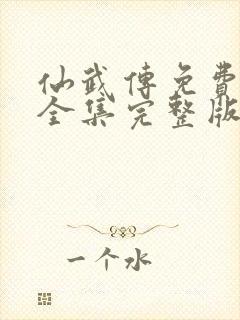 仙武傳免費
全集完整版
一个水